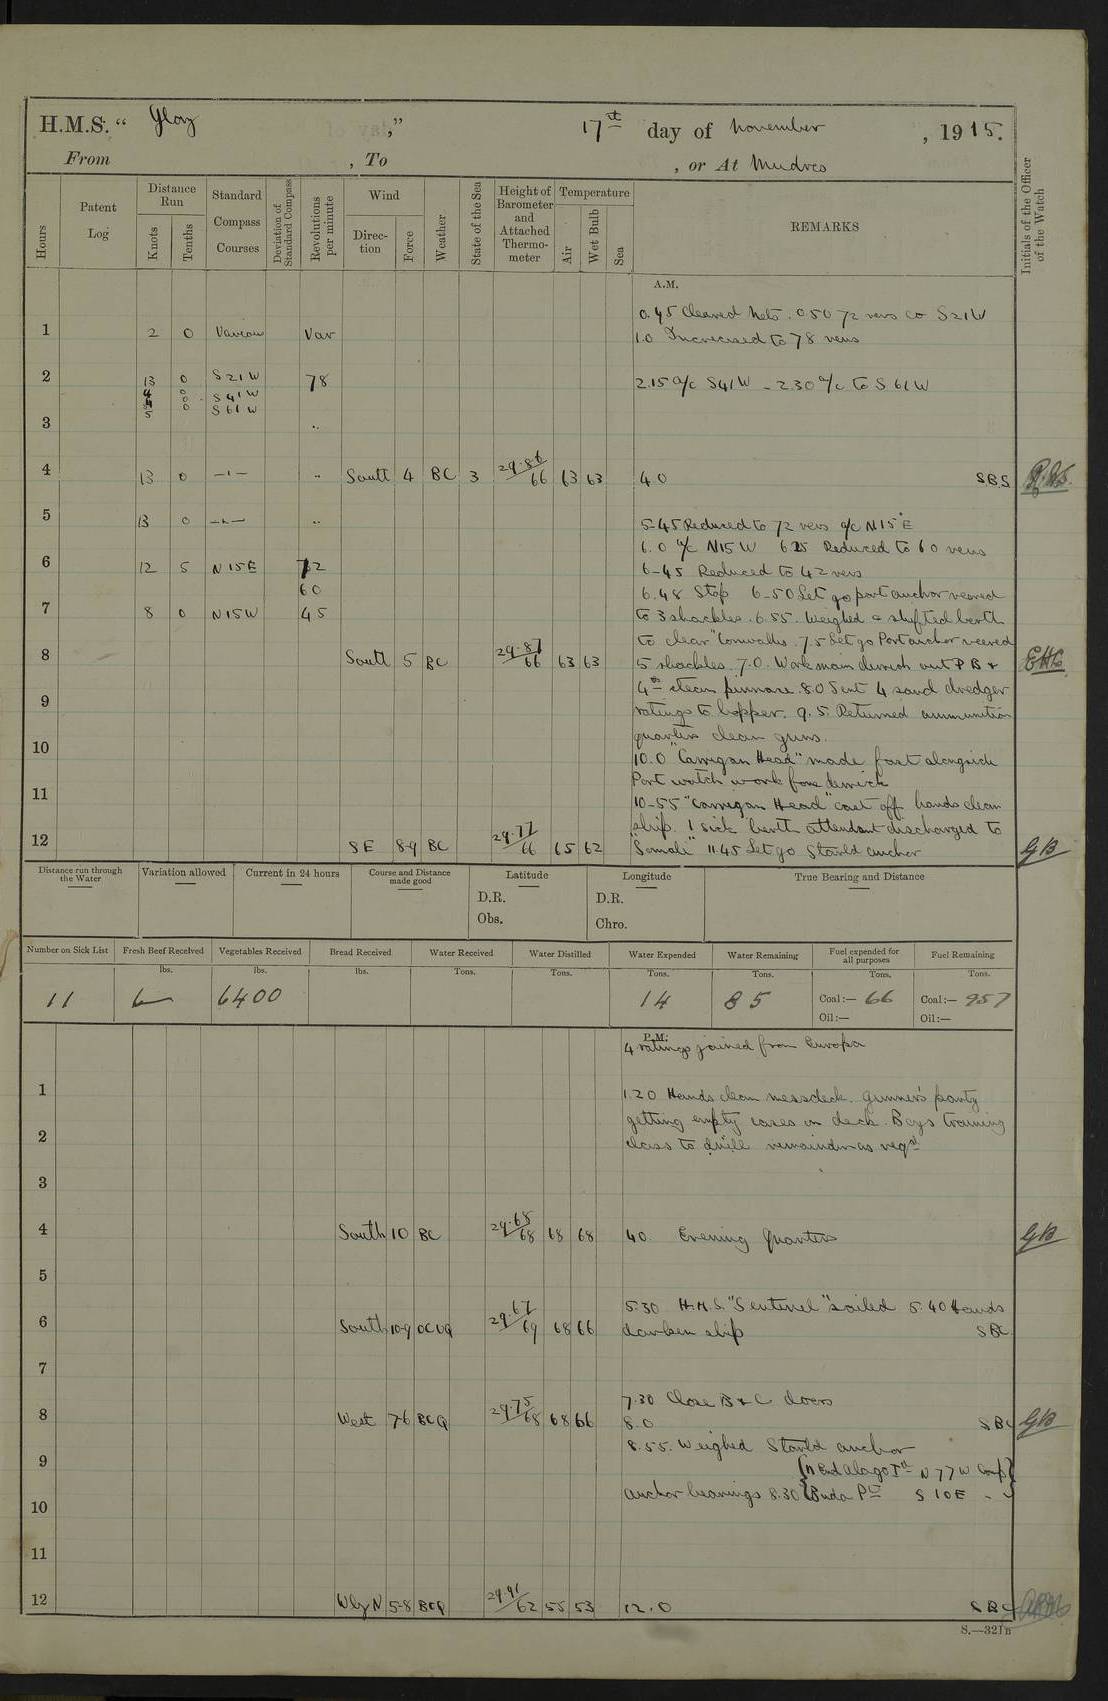 H.M.S. " Glory ," 17th day of November , 1915.
From , To , or At Mudros
Hours
Patent Log
Distance Run
Knots
Tenths
Standard Compass Courses
Deviation of Standard Compass
Revolutions per minute
Wind
Direc-tion
Force
Weather
State of the Sea
Height of Barometer and Attached Thermo-meter
Temperature
Air
Wet Bulb
Sea
REMARKS
Initials of the Officer of the Watch
A.M.
0.45 Cleared Nets. 0.50 72 revs co S21W
1 2 0 Various Var 1.0 Increased to 78 revs
2 13 0 S21W 78 2.15 a/c S41W - 2.30 a/c to S61W
4 0 S41W
3 5 0 S61W ..
4 13 0 -"- .. South 4 BC 3 29.86/66 63 63 4.0 SBS
5 13 0 -"- .. 5-45 Reduced to 72 revs a/c N15°E
6.0 a/c N15W 6.25 Reduced to 60 revs
6 12 5 N15E 72 6-45 Reduced to 42 revs
60 6.48 Stop 6-50 Let go port anchor veered
7 8 0 N15W 45 to 3 shackles. 6.55. Weighed & shifted berth
to clear "Cornwallis. 7.5 Let go Port anchor veered
8 South 5 BC 29.87/66 63 63 5 shackles. 7.0. Work main derrick out P B &
4th steam pinnace. 8.0 Sent 4 sand dredger
9 ratings to hopper. 9.5. Returned ammunition
quarters clean guns.
10 10.0 "Carrigan Head" made fast alongside
Port watch work fore derrick
11 10-55 "Carrigan Head" cast off hands clean
ship. 1 sick berth attendant discharged to
12 SE 8-9 BC 29.77/66 65 62 "Somali" 11.45 Let go Starbd anchor GB
Distance run through the Water
Variation allowed
Current in 24 hours
Course and Distance made good
Latitude
D.R.
Obs.
Longitude
D.R.
Chro.
True Bearing and Distance
Number on Sick List
Fresh Beef Received
Vegetables Received
Bread Received
Water Received
Water Distilled
Water Expended
Water Remaining
Fuel expended for all purposes
Fuel Remaining
lbs. lbs. lbs. Tons. Tons. Tons. Tons. Tons. Tons.
11 6400 14 85 Coal:— 66 Coal:— 957
Oil:— Oil:—
P.M.
4 ratings joined from Europa
1 1.20 Hands clean messdeck. Gunner's party
getting empty cases on deck. Boys training
2 class to drill remainder as reqd
3
4 South 10 BC 29.68/68 68 68 4.0 Evening Quarters GB
5
5.30 H.M.S. "Sentinel" sailed 5.40 Hands
6 South 10-9 OCUQ 29.67/69 68 66 darken ship SBC
7
7.30 Close B & C doors
8 West 7-6 BCQ 29.75/68 68 66 8.0 SBC GB
8.55. Weighed Starbd anchor
9 N77W Comp
10 Anchor bearings 8.30 S10E
11
12 WbyN 5-8 BCQ 29.91/62 55 53 12.0 SBC
S.—321B